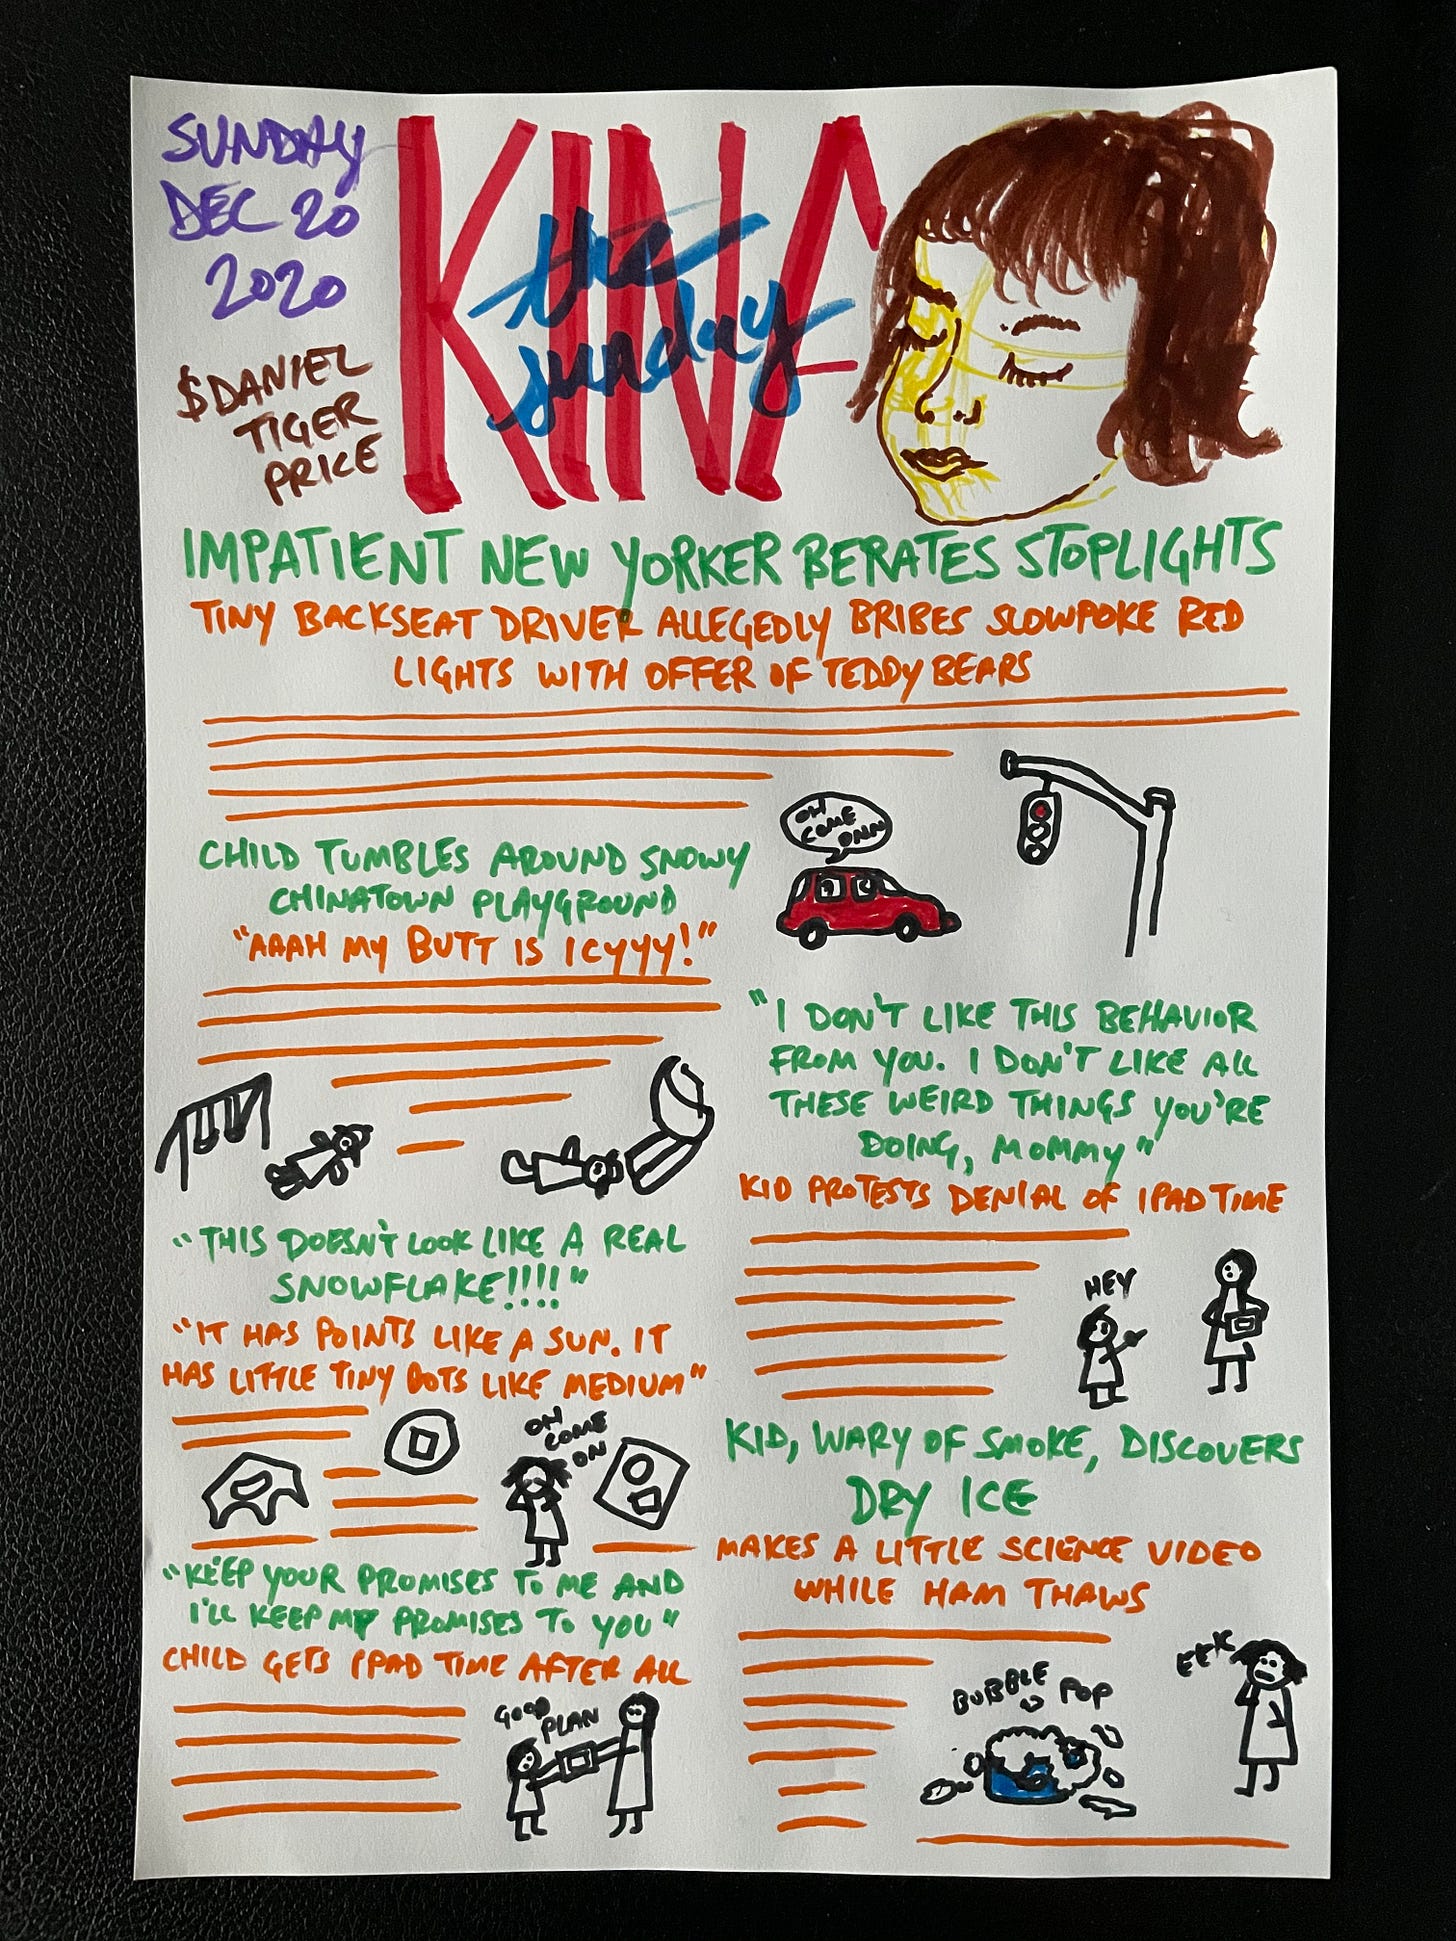 SUNDAY
DEC 20
2020
$DANIEL
TIGER
PRICE
KINA
the
sunday
IMPATIENT NEW YORKER BERATES STOPLIGHTS
TINY BACKSEAT DRIVER ALLEGEDLY BRIBES SLOWPOKE RED
LIGHTS WITH OFFER OF TEDDY BEARS
OH
COME
ONN
CHILD TUMBLES AROUND SNOWY
CHINATOWN PLAYGROUND
"AAAH MY BUTT IS ICYYY!"
"I DON'T LIKE THIS BEHAVIOR
FROM YOU. I DON'T LIKE ALL
THESE WEIRD THINGS YOU'RE
DOING, MOMMY"
KID PROTESTS DENIAL OF IPAD TIME
HEY
"THIS DOESN'T LOOK LIKE A REAL
SNOWFLAKE!!!!"
"IT HAS POINTS LIKE A SUN. IT
HAS LITTLE TINY DOTS LIKE MEDIUM"
OH
COME
ON
KID, WARY OF SMOKE, DISCOVERS
DRY ICE
MAKES A LITTLE SCIENCE VIDEO
WHILE HAM THAWS
BUBBLE POP
EEK
"KEEP YOUR PROMISES TO ME AND
I'LL KEEP MY PROMISES TO YOU"
CHILD GETS IPAD TIME AFTER ALL
GOOD
PLAN